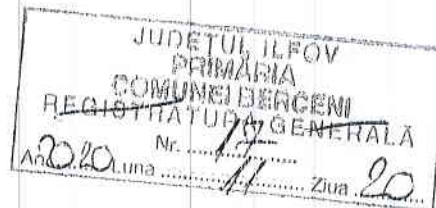 JUDEȚUL ILFOV
PRIMĂRIA
COMUNEI BERCENI
REGISTRATURA GENERALĂ
Nr. .... 17 ....
An 2020 Luna .... 11 .... Ziua 20